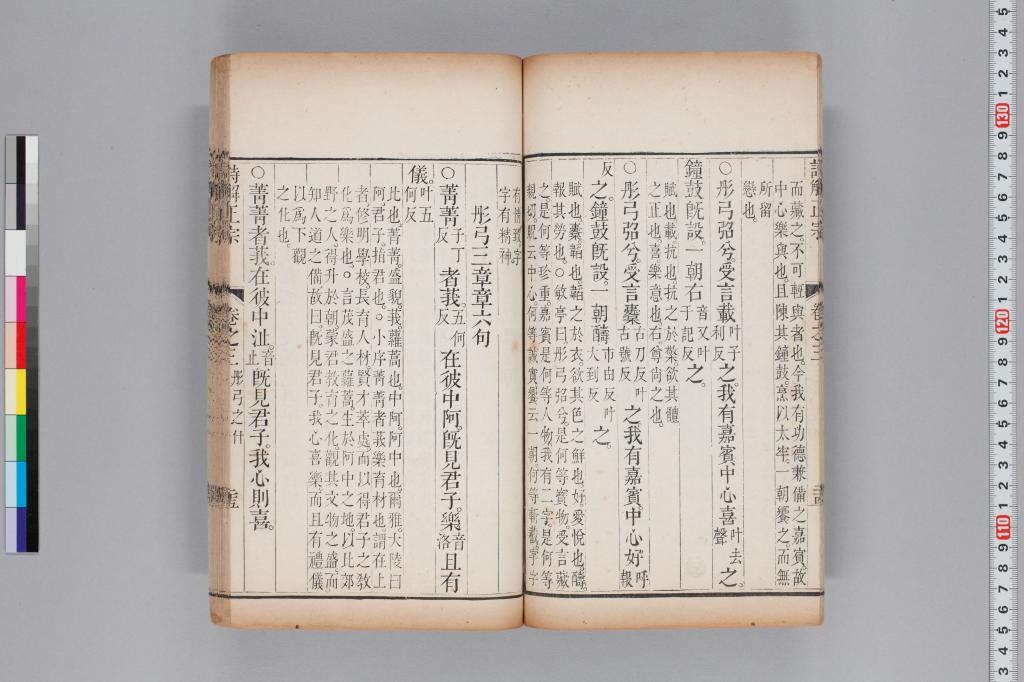 詩解正宗 卷之三
而藏之。不可輕與者也。今我有功德兼備之嘉賓。故
中心樂與也。且陳其鐘鼓。烹以太牢。一朝饗之。而無
所留
戀也。
○彤弓弨兮。受言載叶子利反之。我有嘉賓。中心喜叶去聲之。
鐘鼓旣設。一朝右音又叶于記反之。
賦也。載抗也。抗之於檠欲其體
之正也。喜樂意也。右。尊尙之也。
○彤弓弨兮。受言櫜古刀反叶古號反之。我有嘉賓。中心好呼報
反之。鐘鼓旣設。一朝醻市由反叶大到反之。
賦也。櫜韜也。韜之於衣。欲其色之鮮也。好愛悅也。醻
報其勞也。○敏亭曰。彤弓弨兮。是何等寶物。受言藏
之。是何等珍重。嘉賓是何等人物。我有二字。是何等
親切。貺云中心。何等誠實。饗云一朝。何等斬截。字字
有情致。字
字有精神
彤弓三章章六句
○菁菁子丁反者莪。五何反在彼中阿。旣見君子。樂音洛且有
儀。叶五何反
比也。菁菁盛貌。莪。蘿蒿也。中阿。阿中也。爾雅。大陵曰
阿。君子。指君也。○小序。菁菁者莪。樂育材也。謂在上
者修明學校。長育人材。賢才萃處。而以得君子之敎
化爲樂也。○言茂盛之蘿蒿。生於阿中之地。以比郊
野之人。得升於朝。蒙君敎育之化。觀其文物之盛。而
知人道之備。故曰。旣見君子。我心喜樂。而且有禮儀
以爲下觀
之化也。
○菁菁者莪。在彼中沚。音止旣見君子。我心則喜。
詩解正宗 卷之三 彤弓之什